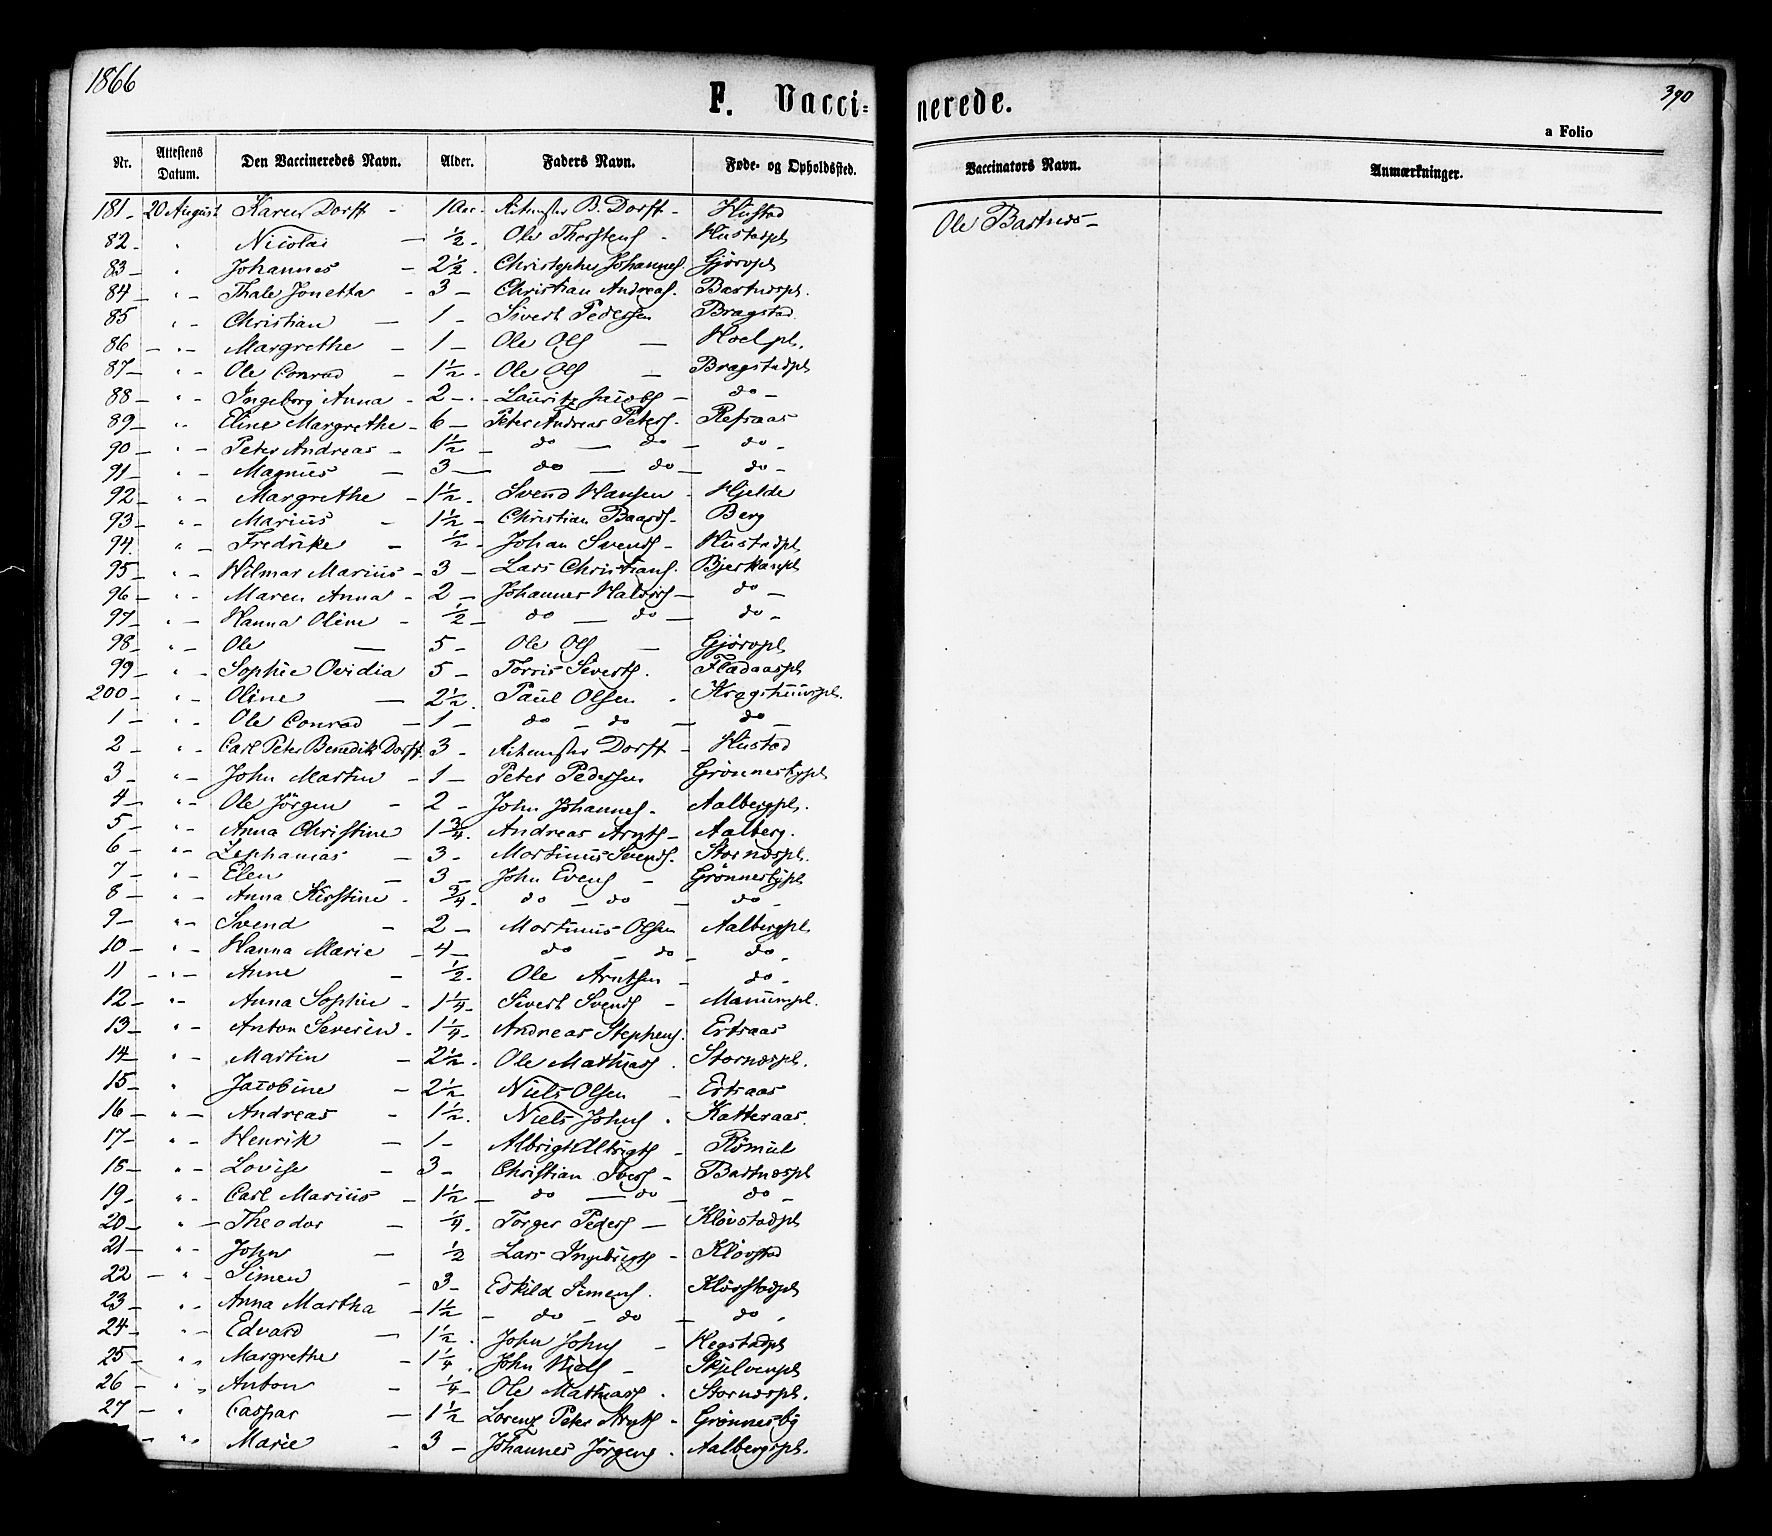 1866
F. Vacci=
nerede.
390
a Folio
Nr. Attestens Datum. Den Vaccineredes Navn. Alder. Faders Navn. Føde- og Opholdssted. Vaccinators Navn. Anmærkninger.
181 - 20 August Karen Dorff - 1 Aar. B. Dorff - Hustad Ole Bastnæs -
82 - " Nicolai - 1/2 - Ole Thorstens - Hustadpl
83 - " Johannes - 2 1/2 - Christopher Johannes. Gjørvpl
84 - " - Thale Jonetta - 3 - Christian Andreas. Bastnæspl.
85 " - Christian - 1 - Sivert Pedersen Bragstad.
86 - " - Margrethe - 1 - Ole Ols - Hoelpl.
87 - " - Ole Conrad - 1 1/2 - Ole Ols - Bragstadpl
88 - " - Ingeborg Anna - 2 - Lauritz Jacobs - do -
89 - " Eline Margrethe - 6 - Peter Andreas Peters. Refsaas
90 - " - Peter Andreas - 1 1/2 - do - do - do -
91 - " - Magnus - 3 - do - do - do -
92 - " - Margrethe - 1 1/2 - Svend Hansen - Hjelde
93 - " - Marius - 1 1/2 - Christian Baards - Berg
94. " - Fredrike - 1/2 - Johan Svends - Hustadpl
95 - " - Hilmar Marius - 3 - Lars Christians. Bjerkanpl
96 - " - Maren Anna - 2 - Johannes Haldors - do -
97 - " - Hanna Oline - 1/2 - do - do - do -
98 - " - Ole - 5 - Ole Ols - Gjørvpl
99 - " - Sophie Ovidia 5 - Torris Siverts. Fladaaspl
200 - " - Oline - 2 1/2. Paul Olsen - Kragstuunspl.
1 - " - Ole Conrad - 1 - do - do - do -
2 - " - Carl Peter Benedik Dorff. 3 - Dorff - Hustad
3 - " - John Martin - 1 - Peter Pedersen Grønnesbypl
4 - " - Ole Jörgen - 2 - John Johannes - Aalbergpl.
5 - " - Anna Christine 1 3/4. Andreas Arnts - Aalberg.
6 - " - Zephanias - 3 - Mortinus Svends. Stornæspl.
7 - " - Elen - 3 - John Evens - Grønnesbypl
8 - " - Anna Kirstine - 3/4 - do - do - do -
9 - " - Svend - 2 - Mortinus Olsen Aalbergpl
10 - " - Hanna Marie - 4 - do - do - do -
11 - " - Anne - 1/2 - Ole Arntsen - do -
12 - " - Anna Sophie - 1 1/4 - Sivert Svends - Manumpl.
13 - " - Anton Severin - 1 1/4 - Andreas Stephens. Ertsaas
14 - " - Martin - 2 1/2 - Ole Mathias. Stornæspl.
15 - " Jacobine - 2 1/2 Niels Olsen - Ertsaas
16 - " - Andreas - 1 1/2. Niels Johns. Katteraas.
17 - " - Henrik - 1 - Albrigt Albrigts - Römul
18 - " - Lovise - 3 - Christian Ivers - Bastnæspl
19 - " - Carl Marius - 1 1/2 - do - do - do -
20 - " - Theodor - 1/4 - Torger Peders - Kløvstadpl
21 - " - John - 1/2 Lars Ingebrigts - Kløvstad
22 - " - Simen - 3 - Eskild Simens. Kløvstadpl
23 - " - Anna Martha - 1 1/2 - do - do - do -
24 - " - Edvard - 1 1/2. John Johns - Hegstadpl
25 - " - Margrethe - 1 1/4. John Niels - Skjelvenpl
26 - " - Anton - 1/4 - Ole Mathias. Stornæspl.
27 - " Caspar - 1 1/2 Lorenz Peter Arnts - Grønnesby
- " - Marie - 3 - Johannes Jörgens. Aalbergspl.